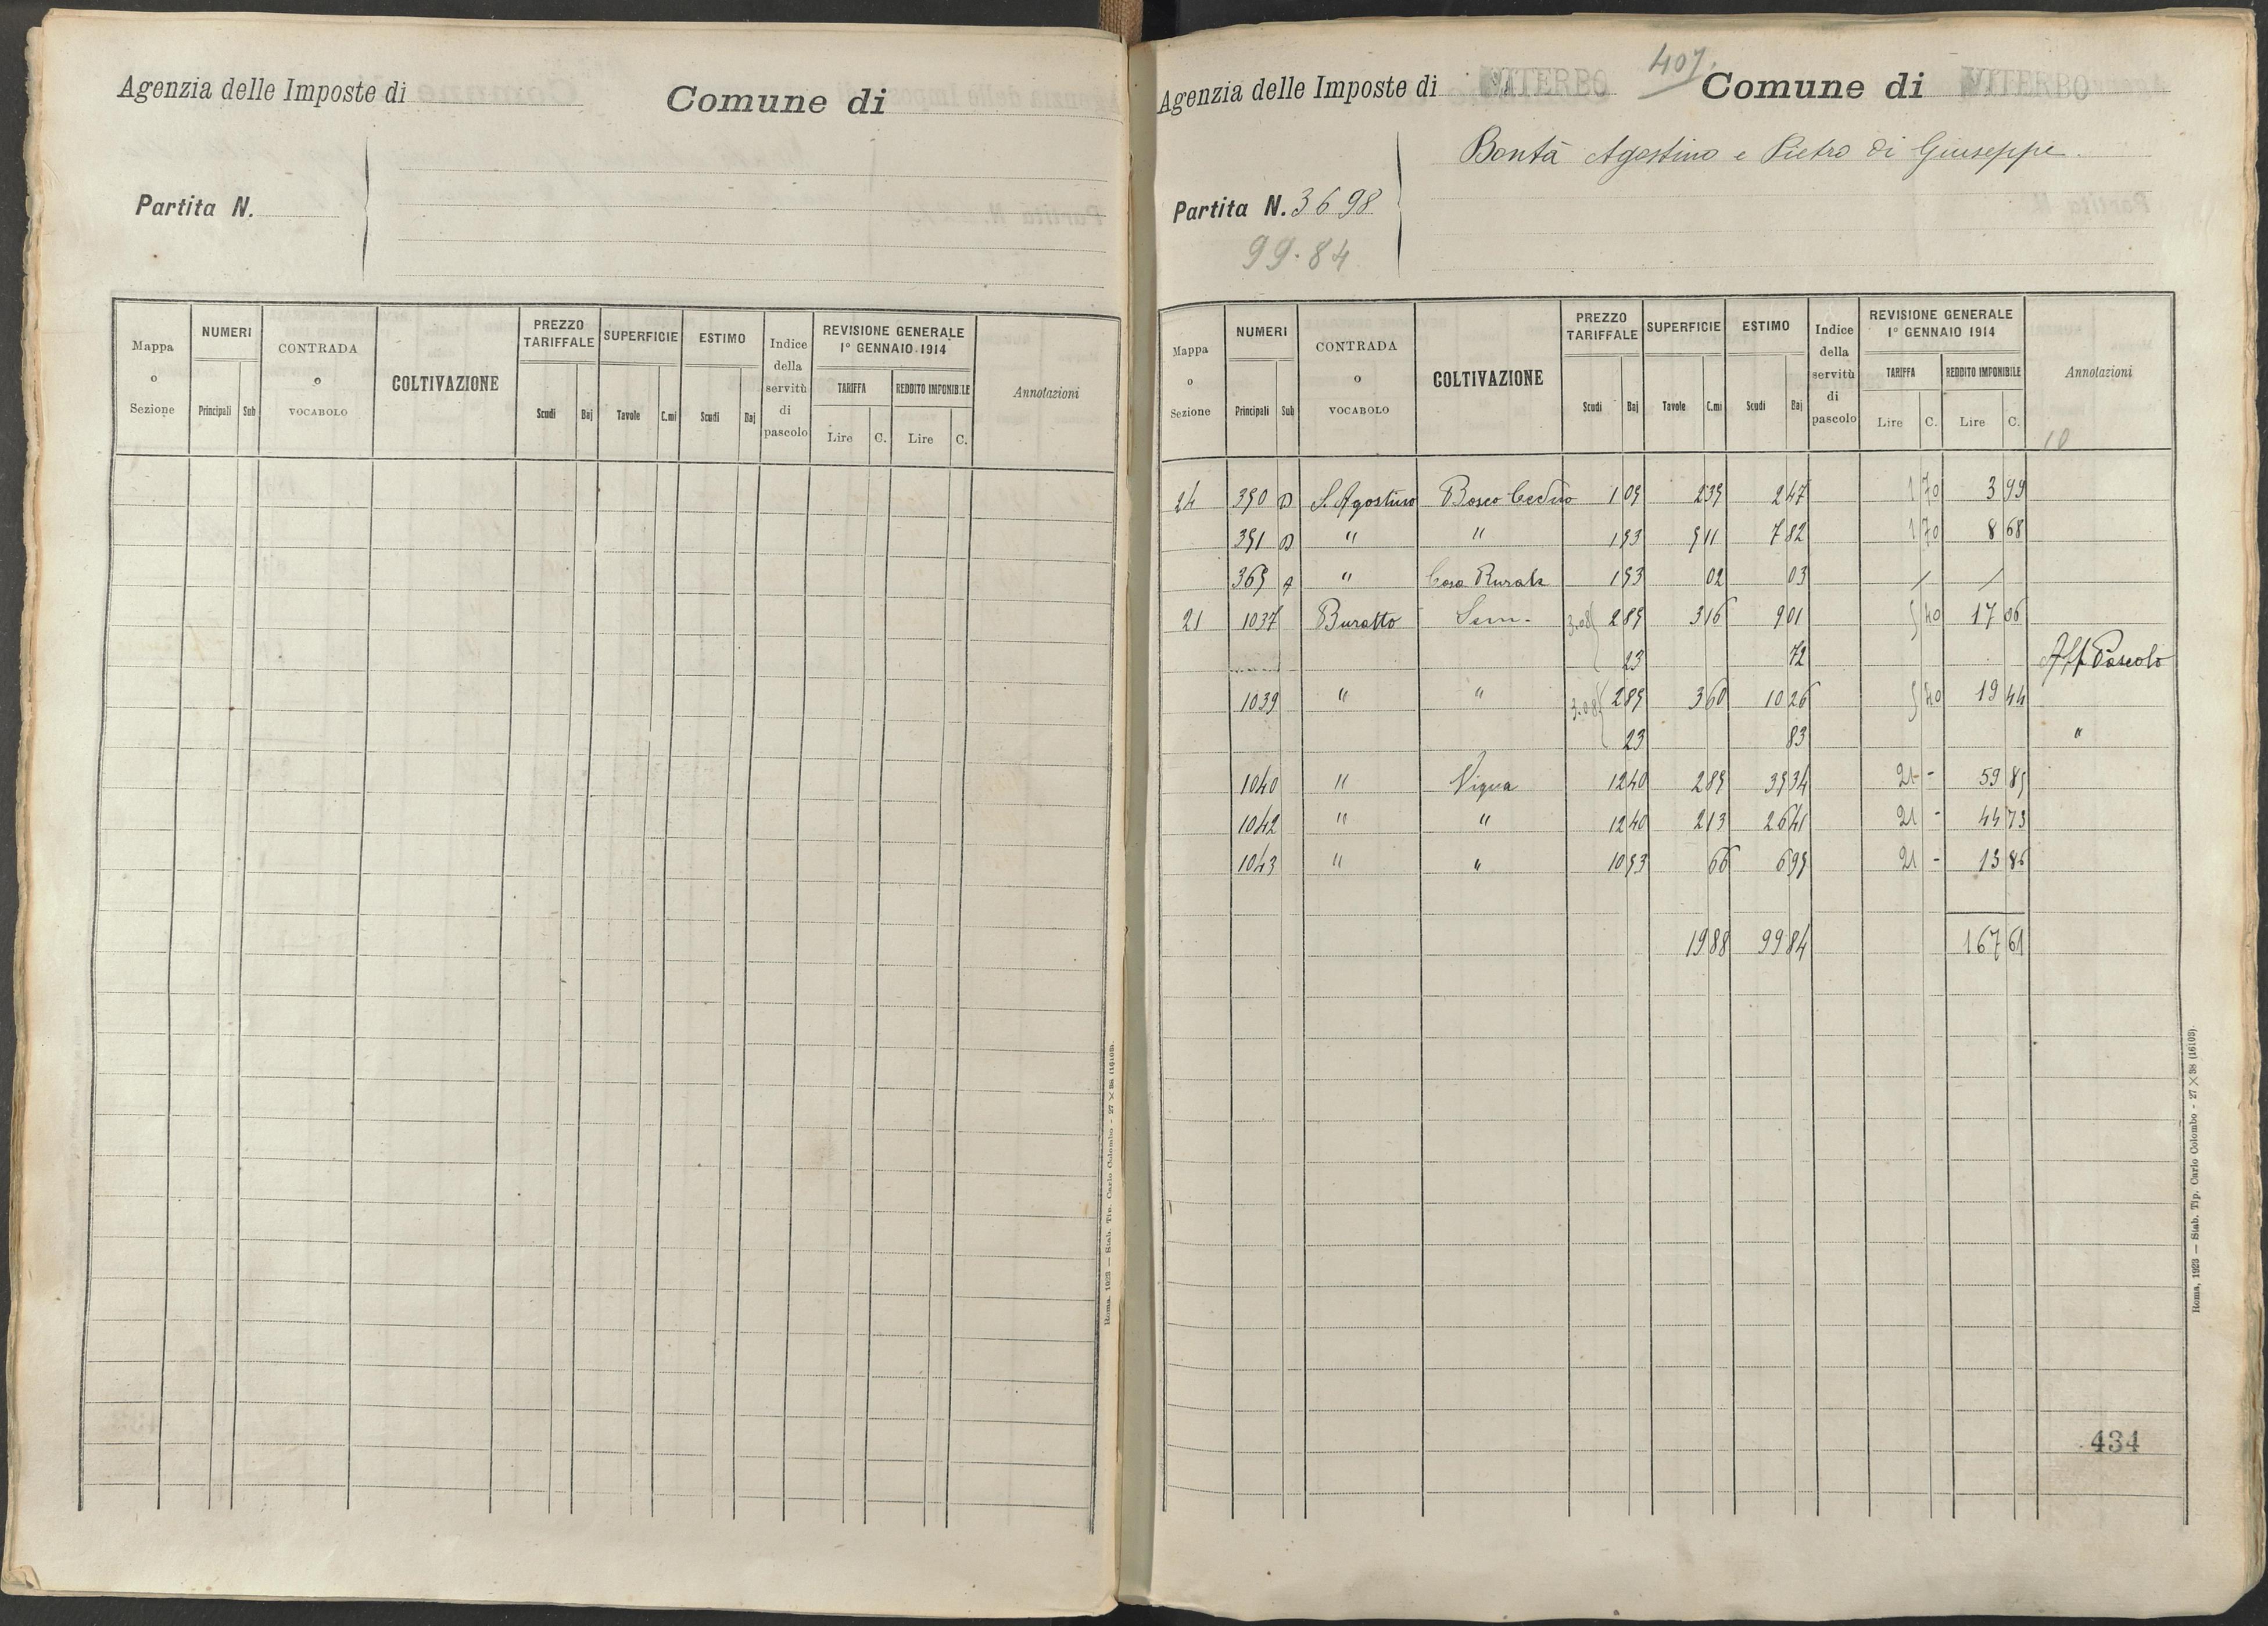 Agenzia delle Imposte di
Comune di
Partita N.
Mappa o Sezione
NUMERI
Principali Sub
CONTRADA o VOCABOLO
COLTIVAZIONE
PREZZO TARIFFALE
Scudi Baj
SUPERFICIE
Tavole C.mi
ESTIMO
Scudi Baj
Indice della servitù di pascolo
REVISIONE GENERALE
1° GENNAIO 1914
TARIFFA REDDITO IMPONIBILE
Lire C. Lire C.
Annotazioni
Roma, 1923 — Stab. Tip. Carlo Colombo - 27 X 38 (16103).
407.
Agenzia delle Imposte di VITERBO Comune di VITERBO
Bontà Agostino e Pietro di Giuseppe.
Partita N. 3698
99.84
Mappa o Sezione
NUMERI
Principali Sub
CONTRADA o VOCABOLO
COLTIVAZIONE
PREZZO TARIFFALE
Scudi Baj
SUPERFICIE
Tavole C.mi
ESTIMO
Scudi Baj
Indice della servitù di pascolo
REVISIONE GENERALE
1° GENNAIO 1914
TARIFFA REDDITO IMPONIBILE
Lire C. Lire C.
Annotazioni
10
24 350 D S. Agostino Bosco Ceduo 1 05 2 35 2 47 1 70 3 99
351 D " " 1 53 5 11 7 82 1 70 8 68
365 A " Casa Rurale 1 53 02 03 / /
21 1037 Buratto Sem. 3.08 2 85 3 16 9 01 5 40 17 06
23 72 Aff Pascolo
1039 " " 3.08 2 85 3 60 10 26 5 40 19 44
23 83 "
1040 " Vigna 12 40 2 85 35 34 21 - 59 85
1042 " " 12 40 2 13 26 41 21 - 44 73
1043 " " 10 53 66 6 95 21 - 13 86
19 88 99 84 167 61
434
Roma, 1923 — Stab. Tip. Carlo Colombo - 27 X 38 (16103).